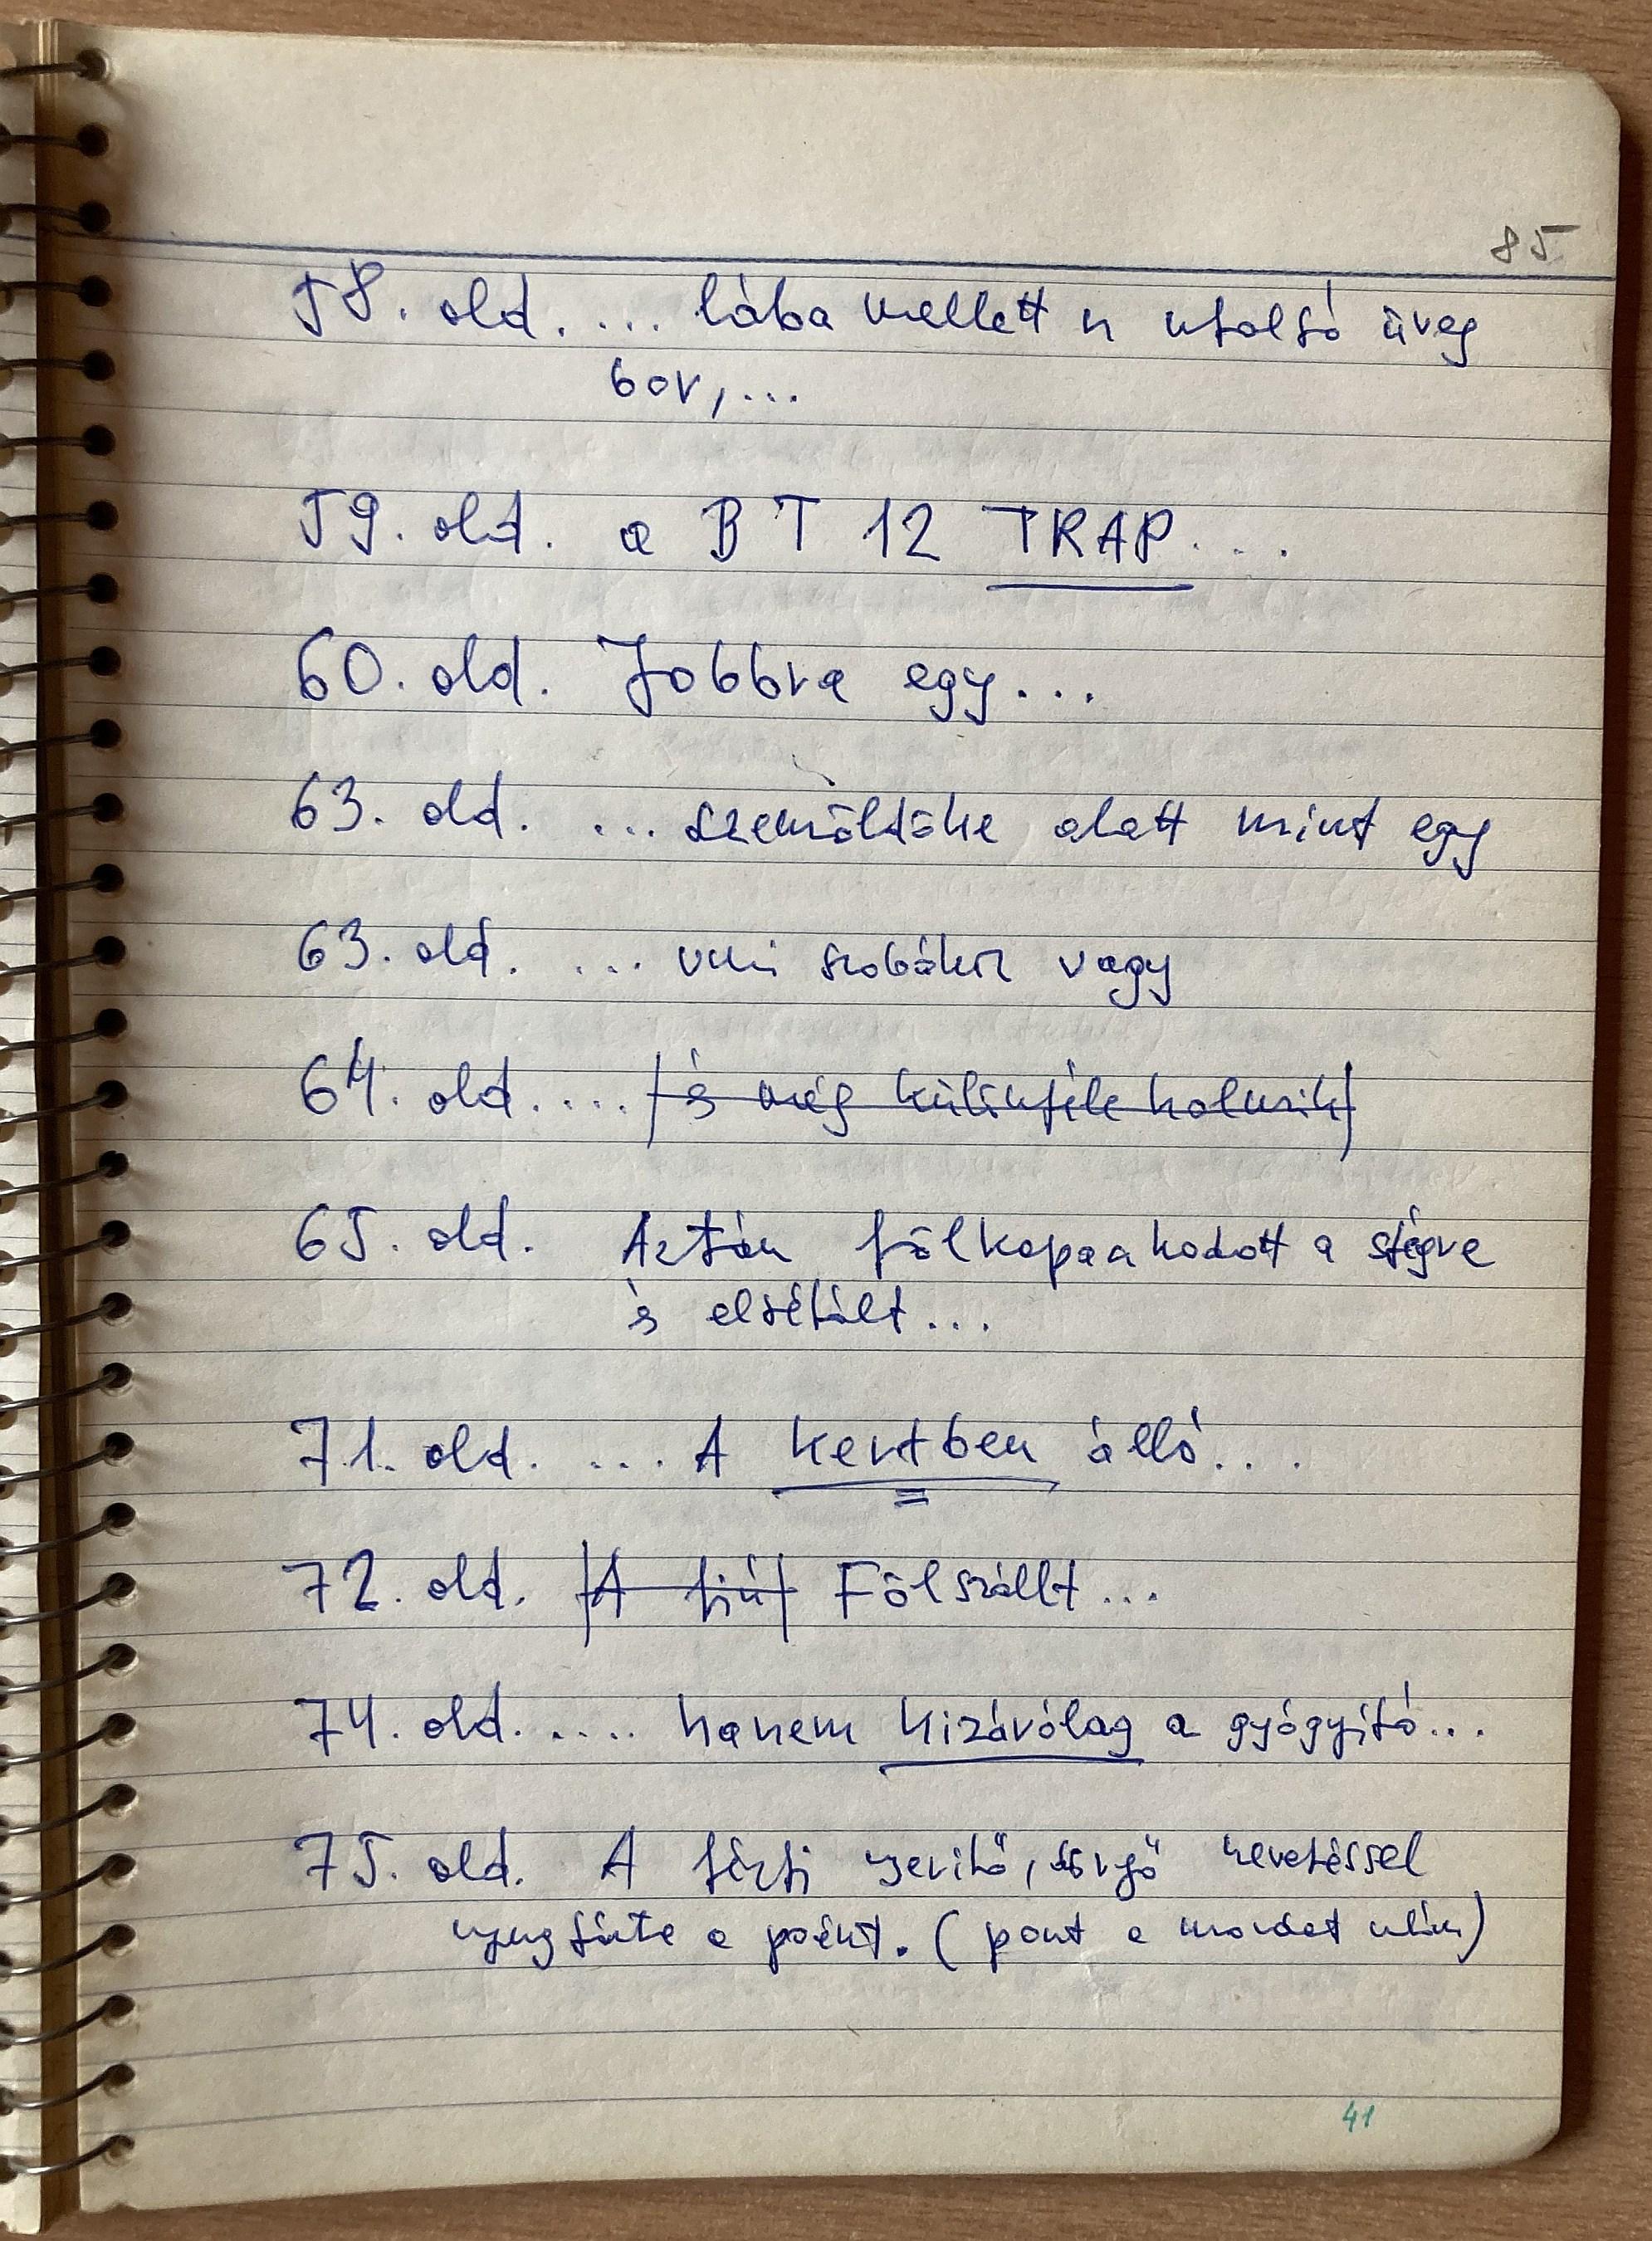 85
58. old. ... lába mellett az utolsó üveg
bor, ...
59. old. a BT 12 TRAP...
60. old. Jobbra egy...
63. old. ... szemöldöke alatt mint egy
63. old. ... szobákra vagy
64. old. ... és még különféle holmik
65. old. Aztán fölkapaakodott a stégre
és elsétált...
71. old. ... A kertben álló...
72. old. A fiú Fölszállt...
74. old. .... hanem kizárólag a gyógyító...
75. old. A férfi nevetéssel
a poént. (pont a mondat után)
41